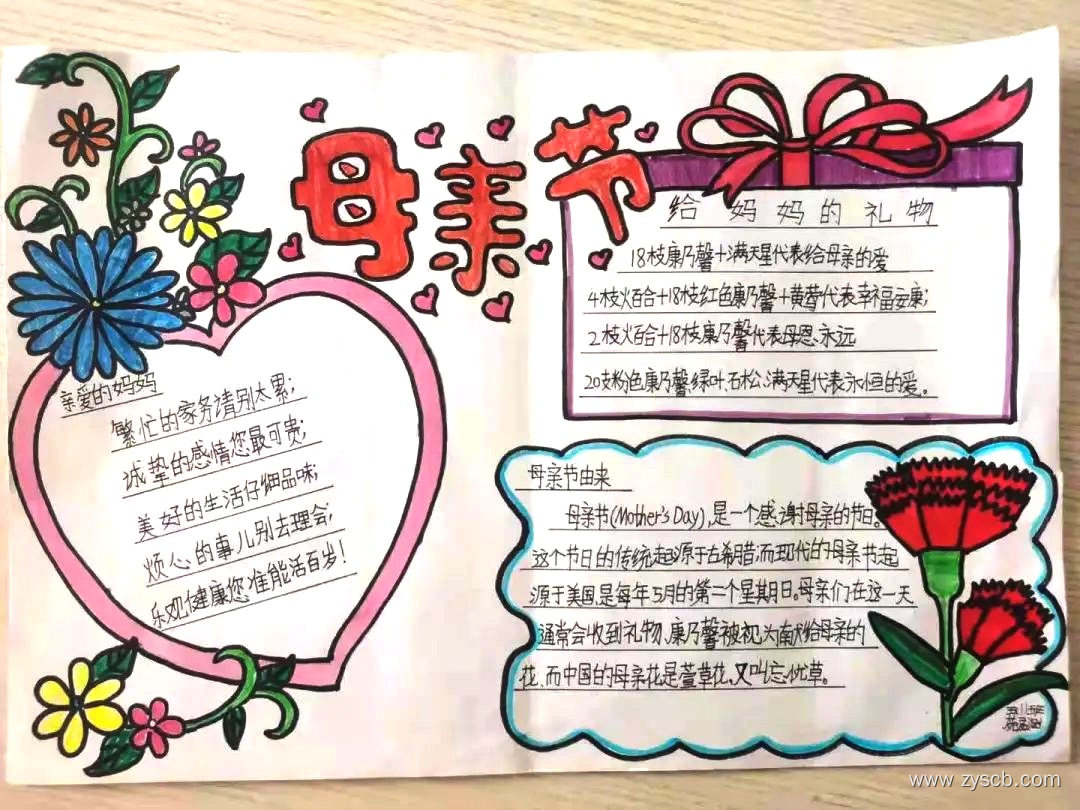 母亲节
亲爱的妈妈
繁忙的家务请别太累;
诚挚的感情您最可贵;
美好的生活仔细品味;
烦心的事儿别去理会;
乐观健康您准能活百岁!
给妈妈的礼物
18枝康乃馨+满天星代表给母亲的爱
4枝火百合+18枝红色康乃馨+黄莺代表幸福安康;
2枝火百合+18枝康乃馨代表母恩永远
20支粉色康乃馨、绿叶、石松、满天星代表永恒的爱。
母亲节由来
母亲节(Mother's Day),是一个感谢母亲的节日。
这个节日的传统起源于古希腊;而现代的母亲节起
源于美国,是每年5月的第二个星期日。母亲们在这一天
通常会收到礼物、康乃馨被视为献给母亲的
花、而中国的母亲花是萱草花,又叫忘忧草。
www.zyscb.com